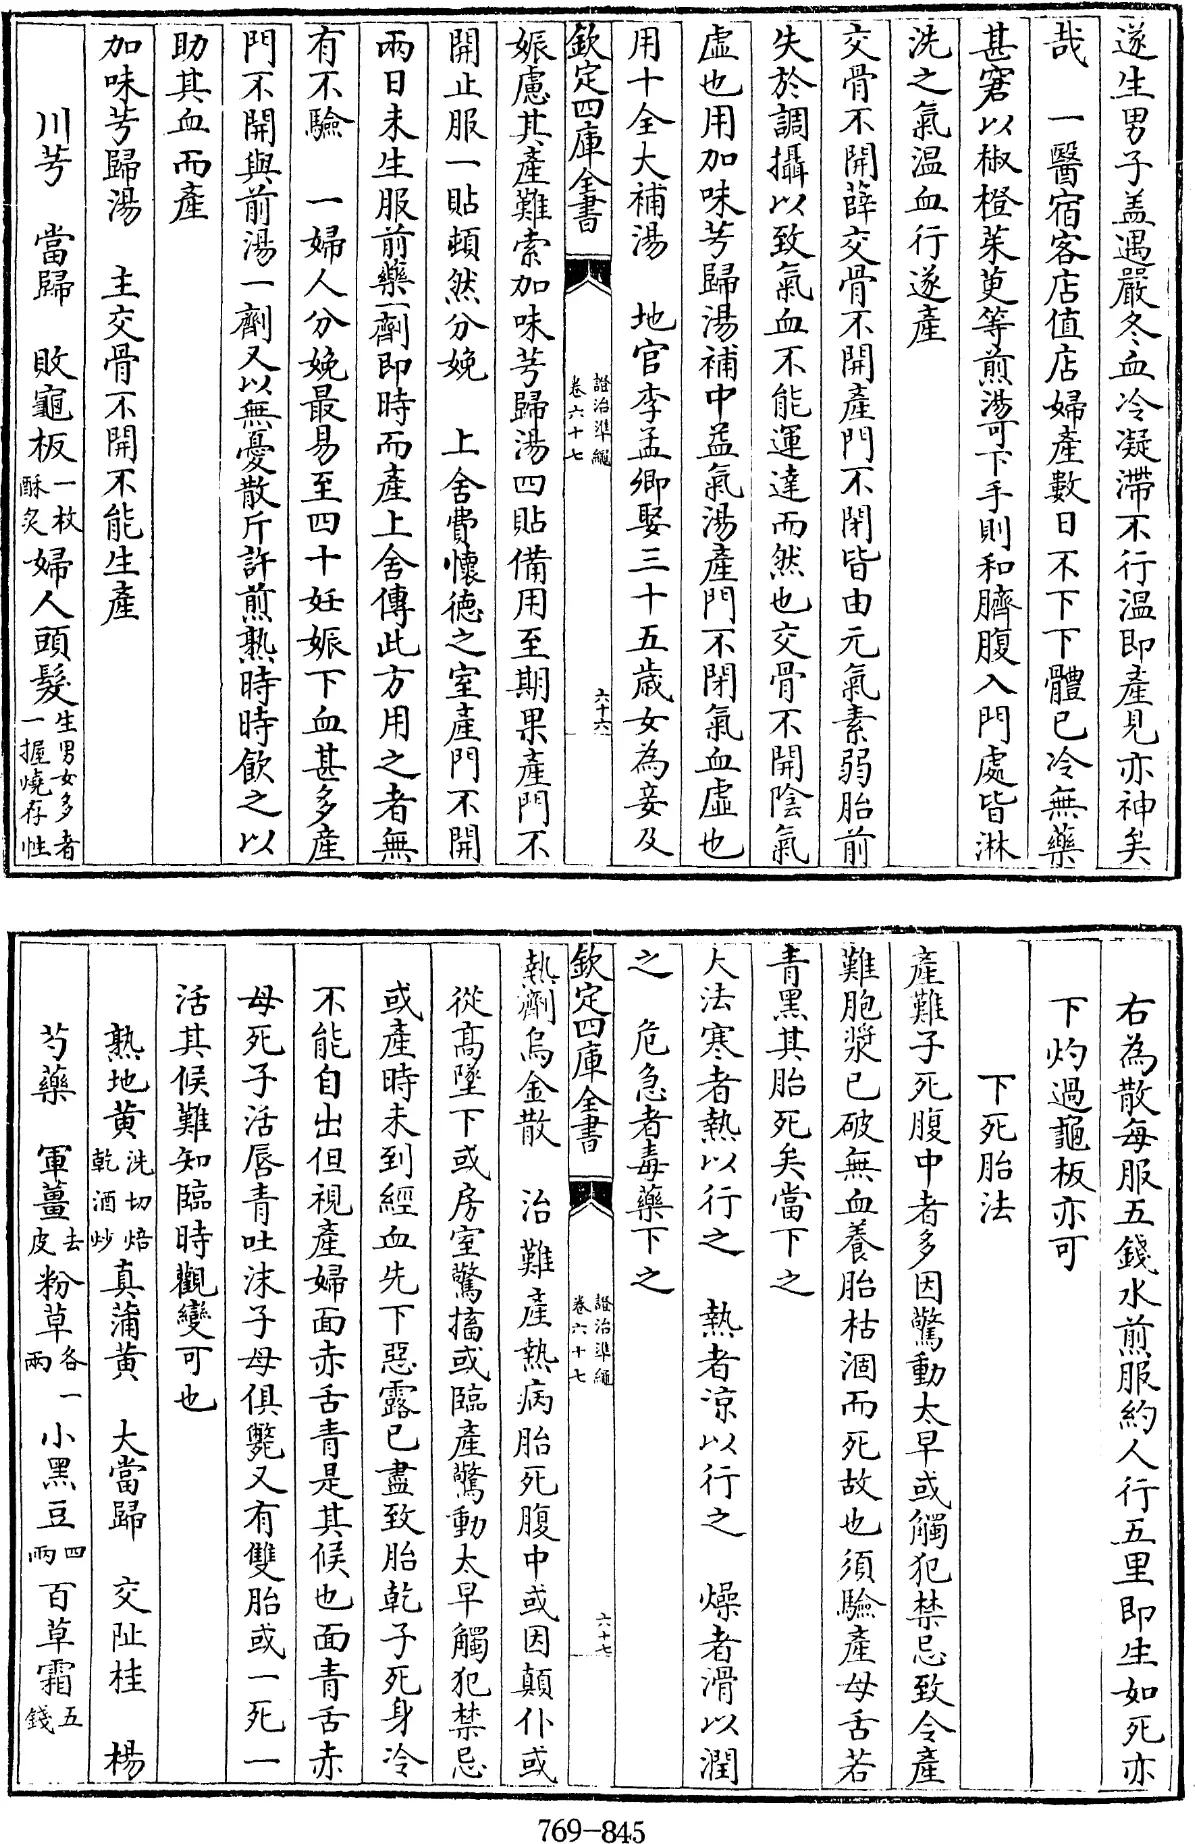 遂生男子盖遇嚴冬血冷凝滯不行温即產見亦神矣
哉　一醫宿客店值店婦產數日不下下體已冷無藥
甚窘以椒橙茱萸等煎湯可下手則和臍腹入門處皆淋
洗之氣温血行遂產
交骨不開薛交骨不開產門不閉皆由元氣素弱胎前
失於調攝以致氣血不能運達而然也交骨不開陰氣
虚也用加味芎歸湯補中益氣湯產門不閉氣血虛也
用十全大補湯　地官李孟卿娶三十五歲女為妾及
欽定四庫全書
證治準繩
卷六十七
六十六
娠慮其產難索加味芎歸湯四貼備用至期果產門不
開止服一貼頓然分娩　上舍費懷德之室產門不開
兩日未生服前藥一劑即時而產上舍傳此方用之者無
有不驗　一婦人分娩最易至四十妊娠下血甚多產
門不開與前湯一劑又以無憂散斤許煎熟時時飲之以
助其血而產
加味芎歸湯　主交骨不開不能生產
川芎　當歸　敗龜板一枚酥炙婦人頭髮生男女多者一握燒存性
右為散每服五錢水煎服約人行五里即生如死亦
下灼過龜板亦可
下死胎法
產難子死腹中者多因驚動太早或觸犯禁忌致令產
難胞漿已破無血養胎枯涸而死故也須驗產母舌若
青黑其胎死矣當下之
大法寒者熱以行之　熱者凉以行之　燥者滑以潤
之　危急者毒藥下之
欽定四庫全書
證治準繩
卷六十七
六十七
熱劑烏金散　治難產熱病胎死腹中或因顛仆或
從高墜下或房室驚搐或臨產驚動太早觸犯禁忌
或產時未到經血先下惡露已盡致胎乾子死身冷
不能自出但視產婦面赤舌青是其候也面青舌赤
母死子活唇青吐沫子母俱斃又有雙胎或一死一
活其候難知臨時觀變可也
熟地黄洗切焙乾酒炒真蒲黄　大當歸　交趾桂　楊
芍藥　軍薑去皮粉草各一兩　小黑豆四兩百草霜五錢
769-845